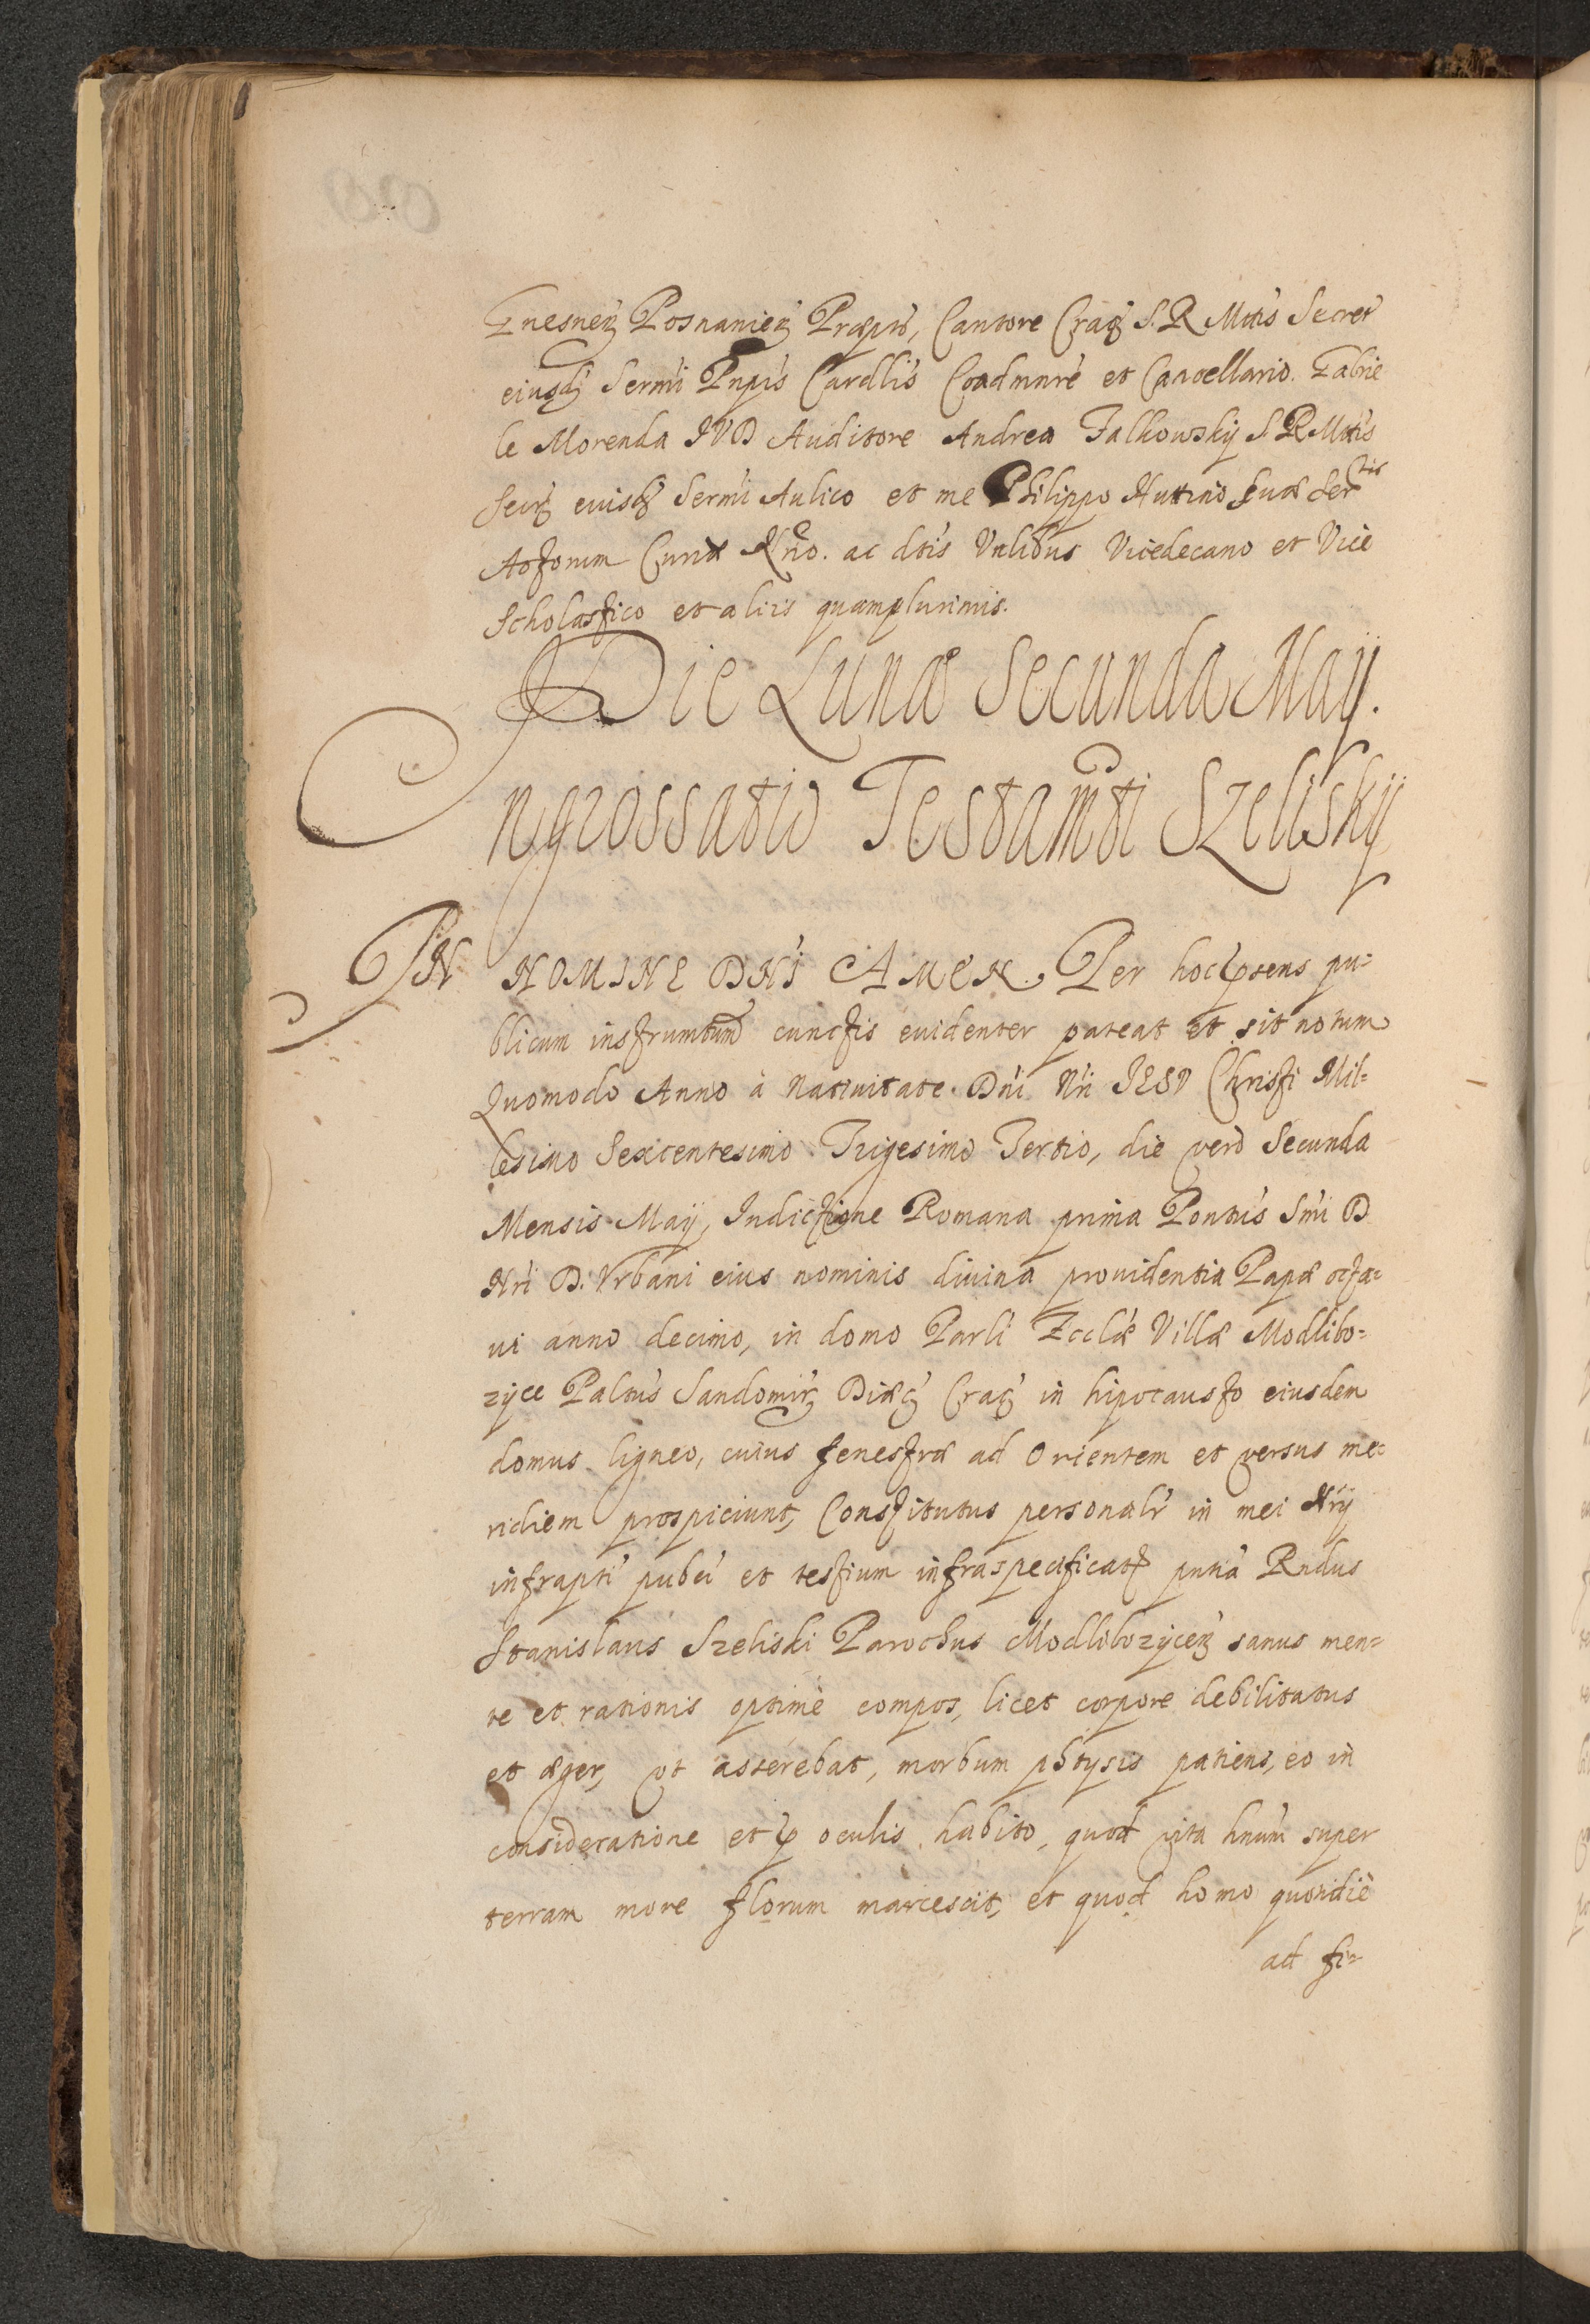 Gnesneñ Posnanieñ Præpto, Cantore Crac S. R Mttis Secret
eiusd Sermi Pnpis Cardlis Coadmnre et Cancellario. Gabrie
le Morenda IVD Auditore Andrea Falkowskÿ S R Mttis
Secr eiusd Sermi Aulico et me Philippo Huttino Suæ Sertis
Actorum Curiæ Nrio. ac dtis Vnlibus Vicedecano et Vice
Scholastico et aliis quamplurimis.
Die Lunæ Secunda Maÿ.
Ingrossatio Testamti Szeliskÿ
IN NOMINE DNI AMEN. Per hoc psens pu=
blicum instrumtum cunctis euidenter pateat et sit notum
Quomodo Anno à Natiuitate Dni Nri IESV Christi Mil=
lesimo Sexcentesimo Trigesimo Tertio, die verò Secunda
Mensis Maÿ, Indictione Romana prima Pontus Smi D
Nri D. Vrbani eius nominis diuina prouidentia Papæ octa=
ui anno decimo, in domo Parli Ecclæ Villæ Modlibo=
zÿce Paltus Sandomir Diæc Crac in hipocausto eiusdem
domus ligneo, cuius fenestræ ad Orientem et versus me=
ridiem prospiciunt, Constitutus personalr in mei Nrÿ
infrapti pubci et testium infraspecificat pntia Rndus
Stanislaus Szeliski Parochus Modlibozÿceñ sanus men=
te et rationis optimè compos, licet corpore debilitatus
et æger, vt asserebat, morbum phtysis patiens, eo in
consideratione et p oculis habito, quod vita hnum super
terram more florum marcescit, et quod homo quotidiè
ad fi=